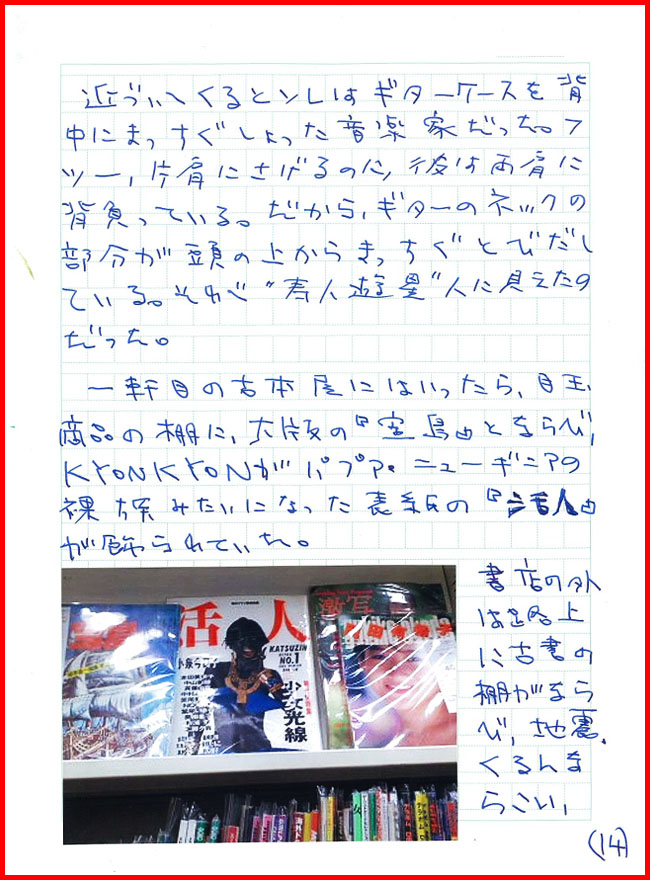 近づいてくるとソレはギターケースを背
中にまっすぐしょった音楽家だった。フ
ツー、片肩にさげるのに、彼は両肩に
背負っている。だから、ギターのネックの
部分が頭の上からまっすぐとびだし
ている。それで"寿人遊星"人に見えたの
だった。
一軒目の古本屋にはいったら、目玉
商品の棚に、大版の『宝島』とならび、
KYONKYONがパプア・ニューギニアの
裸族みたいになった表紙の『活人』
が飾られていた。
活人
KATSUZIN
NO.1
少女光線
激写
書店の外
は路上
に古書の
棚がなら
び、地震、
くるんな
らこい、
(14)